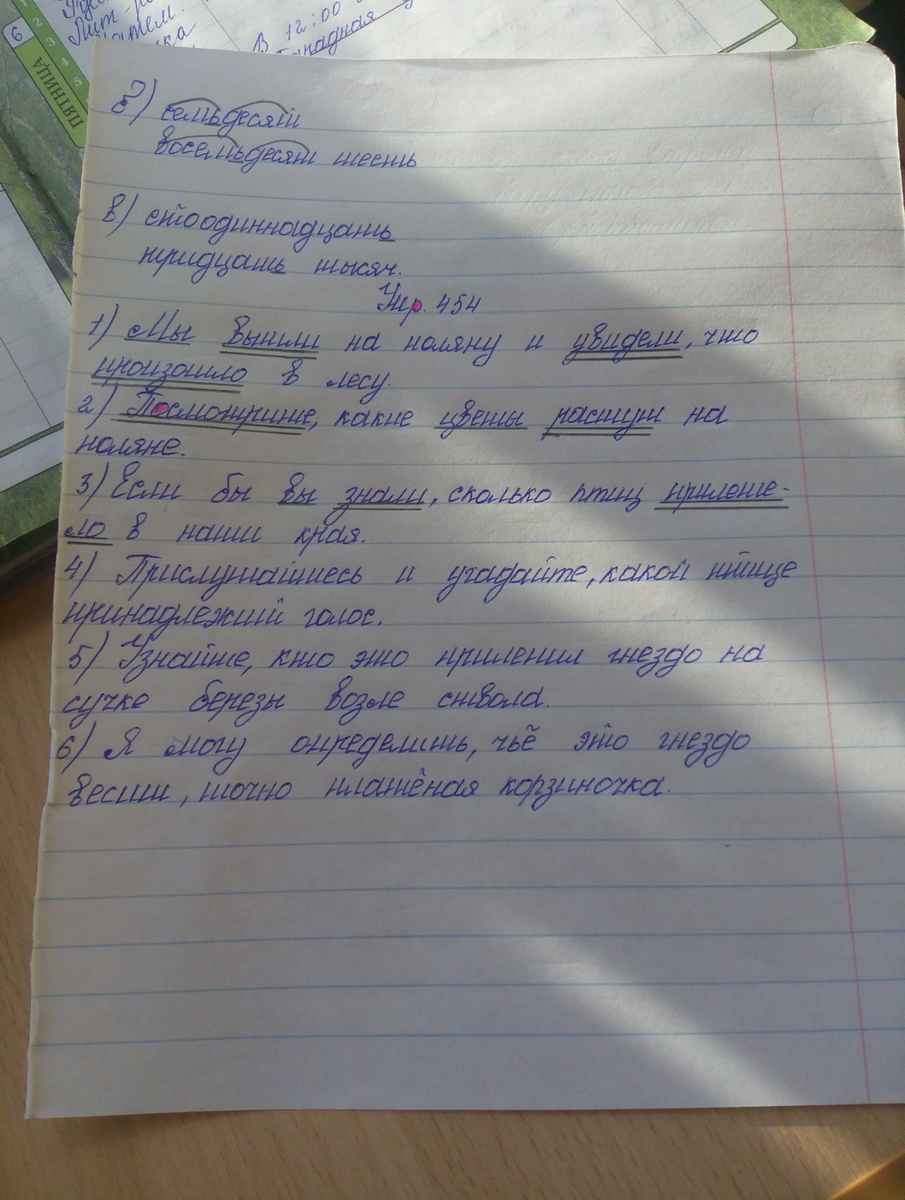 6
ПЯТНИЦА
1
2
3
4
5
В 12:00
б) семьдесят
восемьдесят шесть
в) стоодиннадцать
тридцать тысяч.
Упр. 454
1) Мы вышли на поляну и увидели, что
произошло в лесу.
2) Посмотрите, какие цветы растут на
поляне.
3) Если бы вы знали, сколько птиц прилете-
ло в наши края.
4) Прислушайтесь и угадайте, какой птице
принадлежит голос.
5) Узнайте, кто это прилепил гнездо на
сучке березы возле ствола.
6) Я могу определить, чьё это гнездо
весит, точно платёная корзиночка.